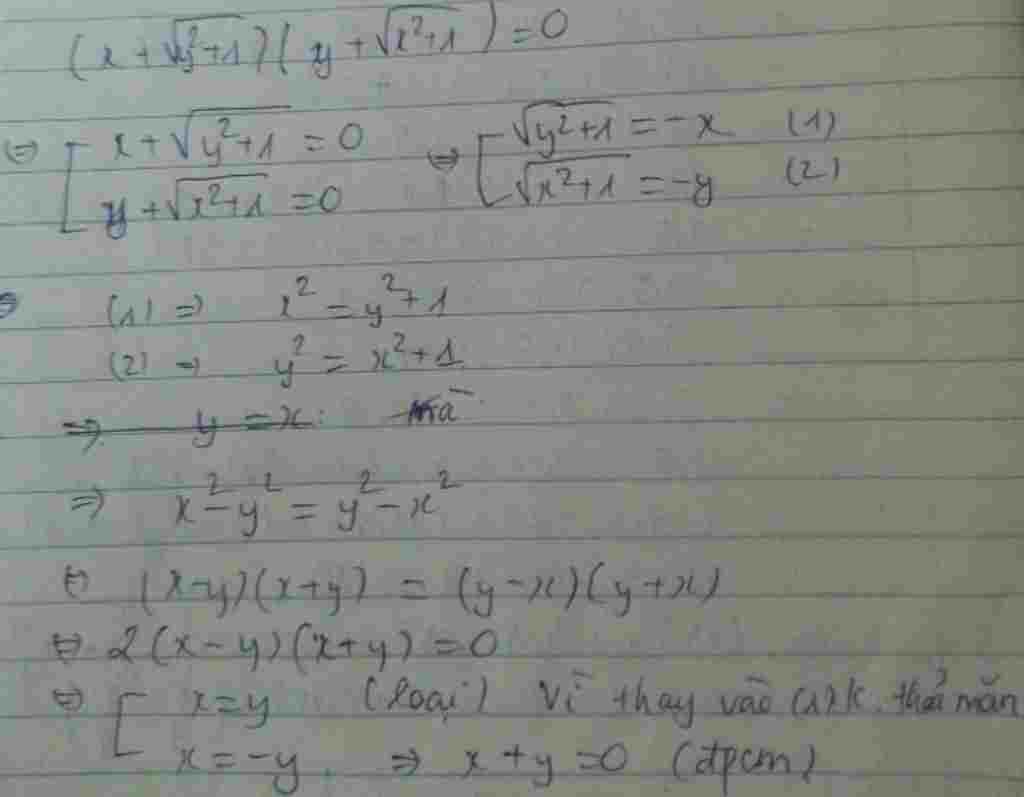 (x + √(y²+1))(y + √(x²+1)) = 0
⇔ [ x + √(y²+1) = 0 ⇔ [ √(y²+1) = -x (1)
y + √(x²+1) = 0 √(x²+1) = -y (2)
(1) ⇒ x² = y² + 1
(2) ⇒ y² = x² + 1
⇒ y = x. mà
⇒ x² - y² = y² - x²
⇔ (x-y)(x+y) = (y-x)(y+x)
⇔ 2(x-y)(x+y) = 0
⇔ [ x = y (loại) Vì thay vào (1) k. thỏa mãn
x = -y. ⇒ x + y = 0 (đpcm)